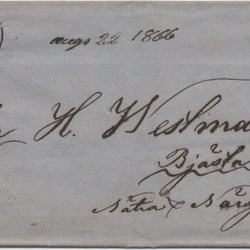 augs 22 1866
H. Westma
Bjästa
Nätra & Närg